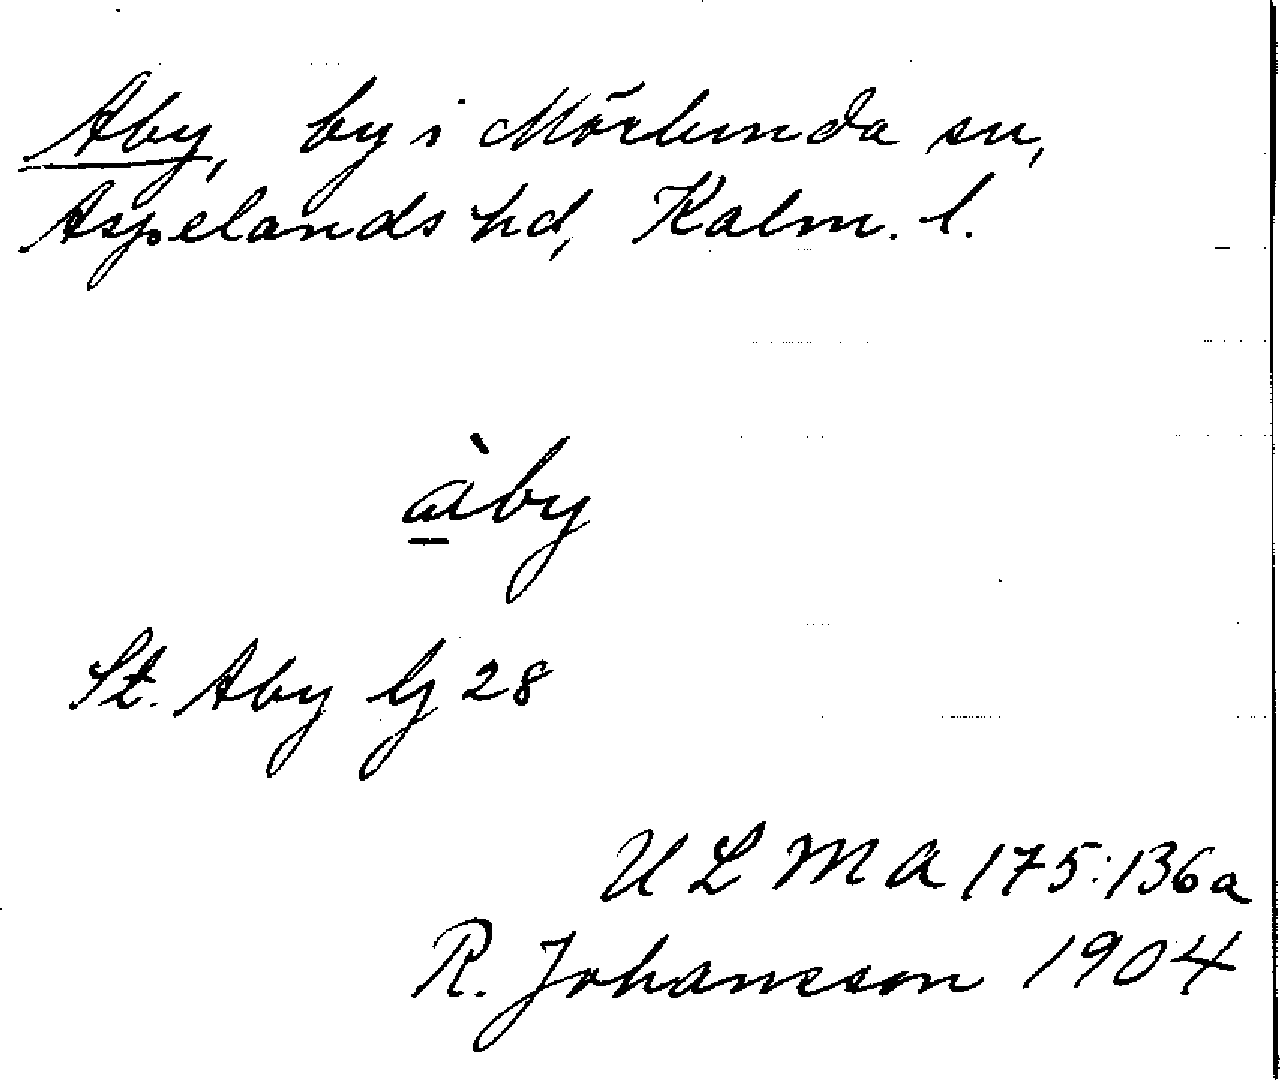 Aby, by i Mörlunda sn,
Aspelands hd, Kalm. l.
à̱by
St. Aby G 28
ULMA 175:136a
R. Johansson 1904